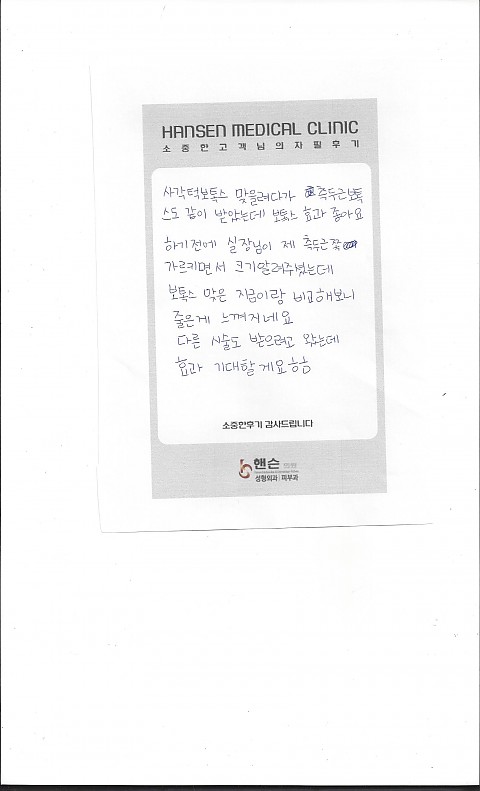 HANSEN MEDICAL CLINIC
소중한고객님의자필후기
사각턱보톡스 맞을려다가 측두근보톡
스도 같이 받았는데 보톡스 효과 좋아요
하기전에 실장님이 제 측두근쪽
가르키면서 크기알려주셨는데
보톡스 맞은 지금이랑 비교해보니
줄은게 느껴지네요
다른 시술도 받으려고 왔는데
효과 기대할게요ㅎㅎ
소중한후기 감사드립니다
핸슨
성형외과 | 피부과